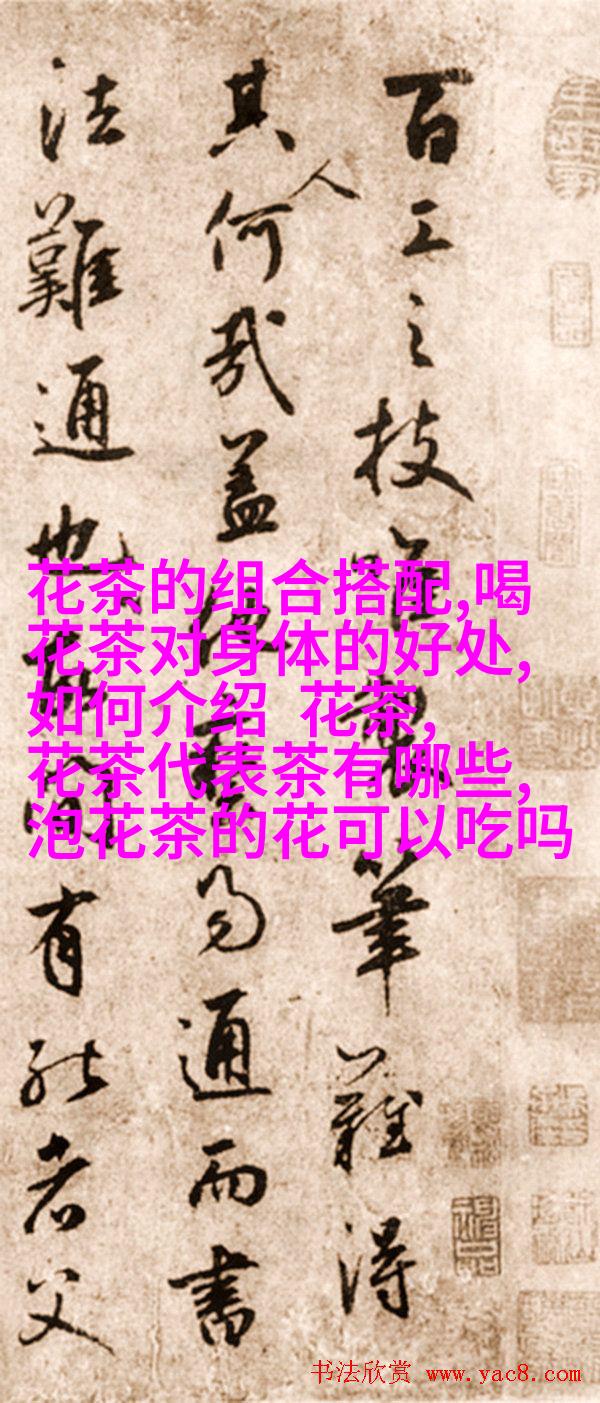 百工之技唯製筆難得
其人何哉蓋書易通而書
法難通也間有能者父
花茶的组合搭配,喝
花茶对身体的好处,
如何介绍 花茶,
花茶代表茶有哪些,
泡花茶的花可以吃吗
书法欣赏 www.yac8.com